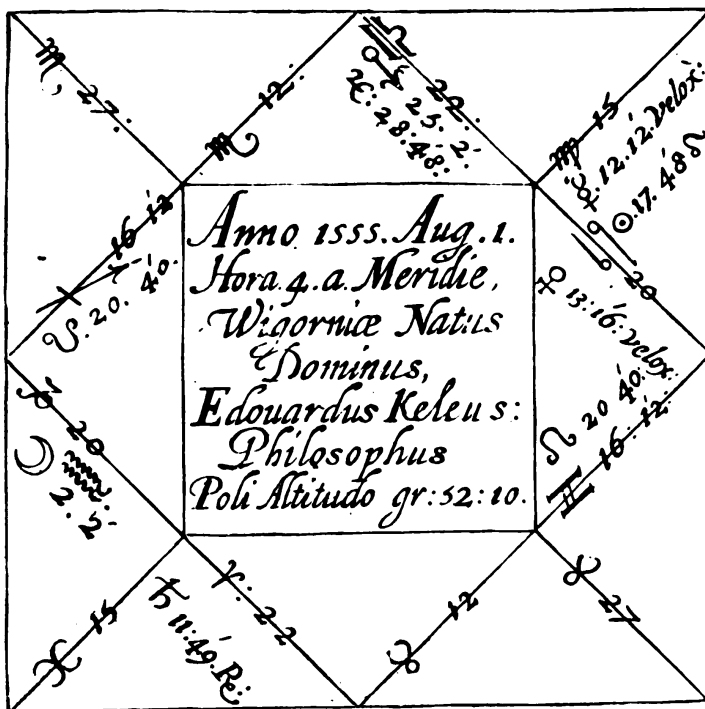 ♏ 27:
♏ 12:
♎ 22:
♂ 25. 2.
♃: 28:48:
♍ 15
☿. 12. 12. velox:
☉. 17. 48 ♌
♋ 20
♀ 13: 16: velox
☊ 20 40:
♊ 16: 12:
♉ 27
♉ 12
♈: 22
♄ 11:49. Re:
♓ 15
♒
2. 2
☽
♑ 20
☋. 20. 40.
♐ 16 12
Anno 1555. Aug. 1.
Hora 4. a. Meridie,
Wigorniæ Natus
Dominus,
Edouardus Keleus:
Philosophus
Poli Altitudo gr: 52: 10.